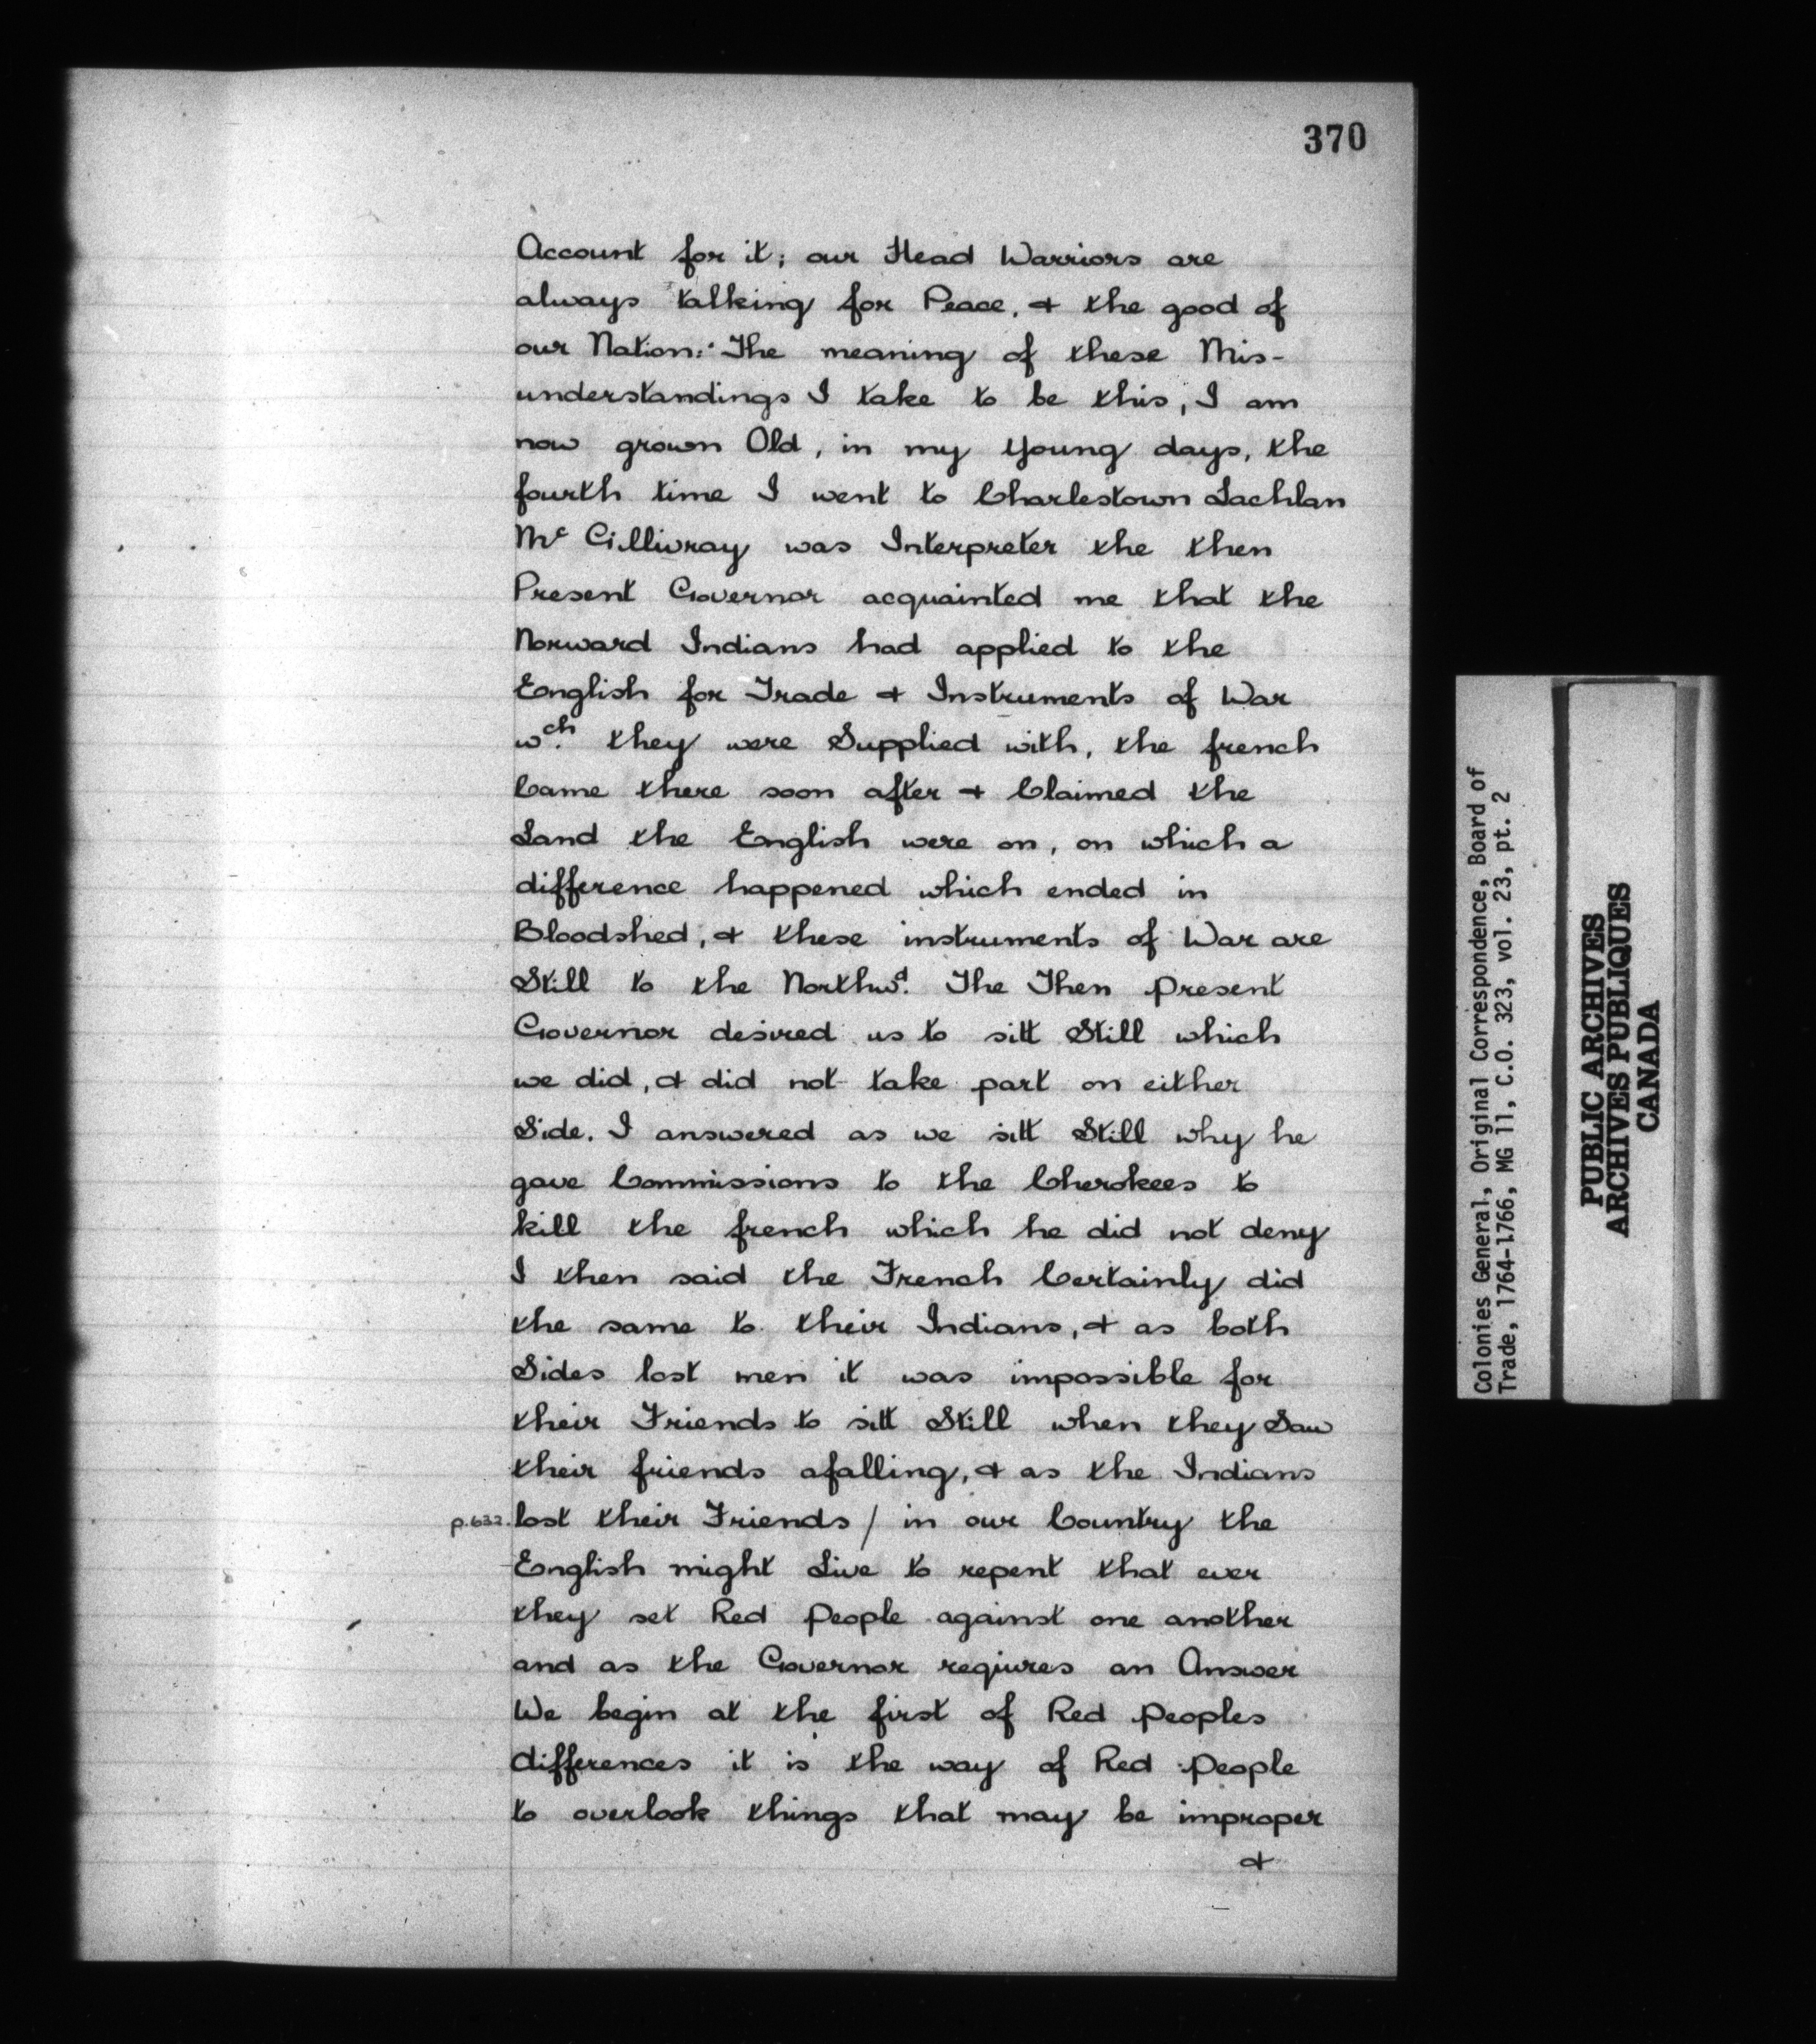 370
Account for it; our Head Warriors are
always talking for Peace, & the good of
our Nation: The meaning of these Mis-
understandings I take to be this, I am
now grown Old, in my young days, the
fourth time I went to Charlestown Lachlan
Mc Gillivray was Interpreter the then
Present Governor acquainted me that the
Norward Indians had applied to the
English for Trade & Instruments of War
wch. they were Supplied with, the french
Came there soon after & Claimed the
Land the English were on, on which a
difference happened which ended in
Bloodshed, & these instruments of War are
Still to the Northwd. The Then present
Governor desired us to sitt Still which
we did, & did not take part on either
Side. I answered as we sitt Still why he
gave Commissions to the Cherokees to
kill the french which he did not deny
I then said the French Certainly did
the same to their Indians, & as both
Sides lost men it was impossible for
their Friends to sitt Still when they Saw
their friends afalling, & as the Indians
p.632. lost their Friends / in our Country the
English might Live to repent that ever
they set Red People against one another
and as the Governor reqiures an Answer
We begin at the first of Red peoples
differences it is the way of Red people
to overlook things that may be improper
&
Colonies General, Original Correspondence, Board of
Trade, 1764-1766, MG 11, C.O. 323, vol. 23, pt. 2
PUBLIC ARCHIVES
ARCHIVES PUBLIQUES
CANADA